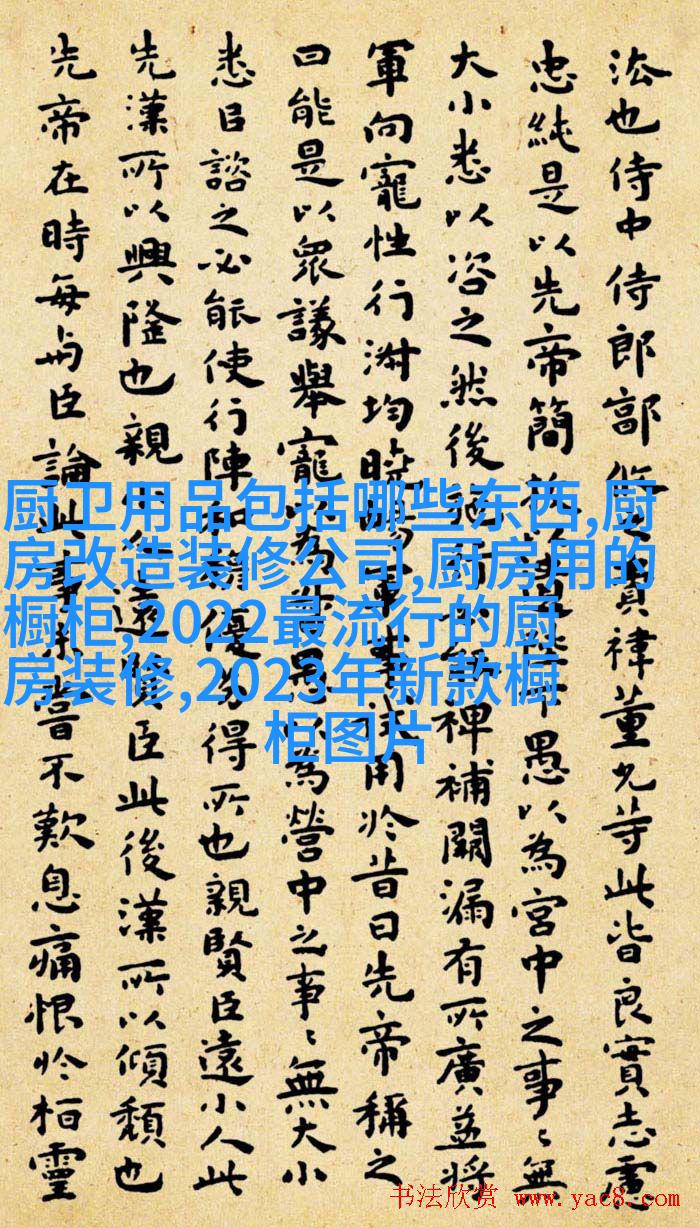 法也侍中侍郎郭攸之費禕董允等此皆良實志慮
忠純是以先帝簡拔以遺陛下愚以為宮中之事〻無
大小悉以咨之然後施行必能裨補闕漏有所廣益將
軍向寵性行淑均曉暢軍事試用於昔日先帝稱之
曰能是以衆議舉寵以為督愚以為營中之事〻無大小
悉以諮之必能使行陣和睦優劣得所也親賢臣遠小人此
先漢所以興隆也親小人遠賢臣此後漢所以傾頹也
先帝在時每與臣論此事未嘗不歎息痛恨於桓靈
厨卫用品包括哪些东西,厨
房改造装修公司,厨房用的
橱柜,2022最流行的厨
房装修,2023年新款橱
柜图片
书法欣赏 www.yac8.com